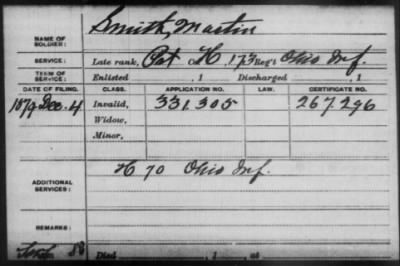 NAME OF SOLDIER: Smith, Martin
SERVICE: Late rank, Pvt Co H, 173 Reg't Ohio Inf.
TERM OF SERVICE: Enlisted , 1 Discharged , 1
DATE OF FILING. CLASS. APPLICATION NO. LAW. CERTIFICATE NO.
1879 Dec. 4 Invalid, 331.305 267.296
Widow,
Minor,
ADDITIONAL SERVICES: H 70 Ohio Inf.
REMARKS:
Died , 1 , at